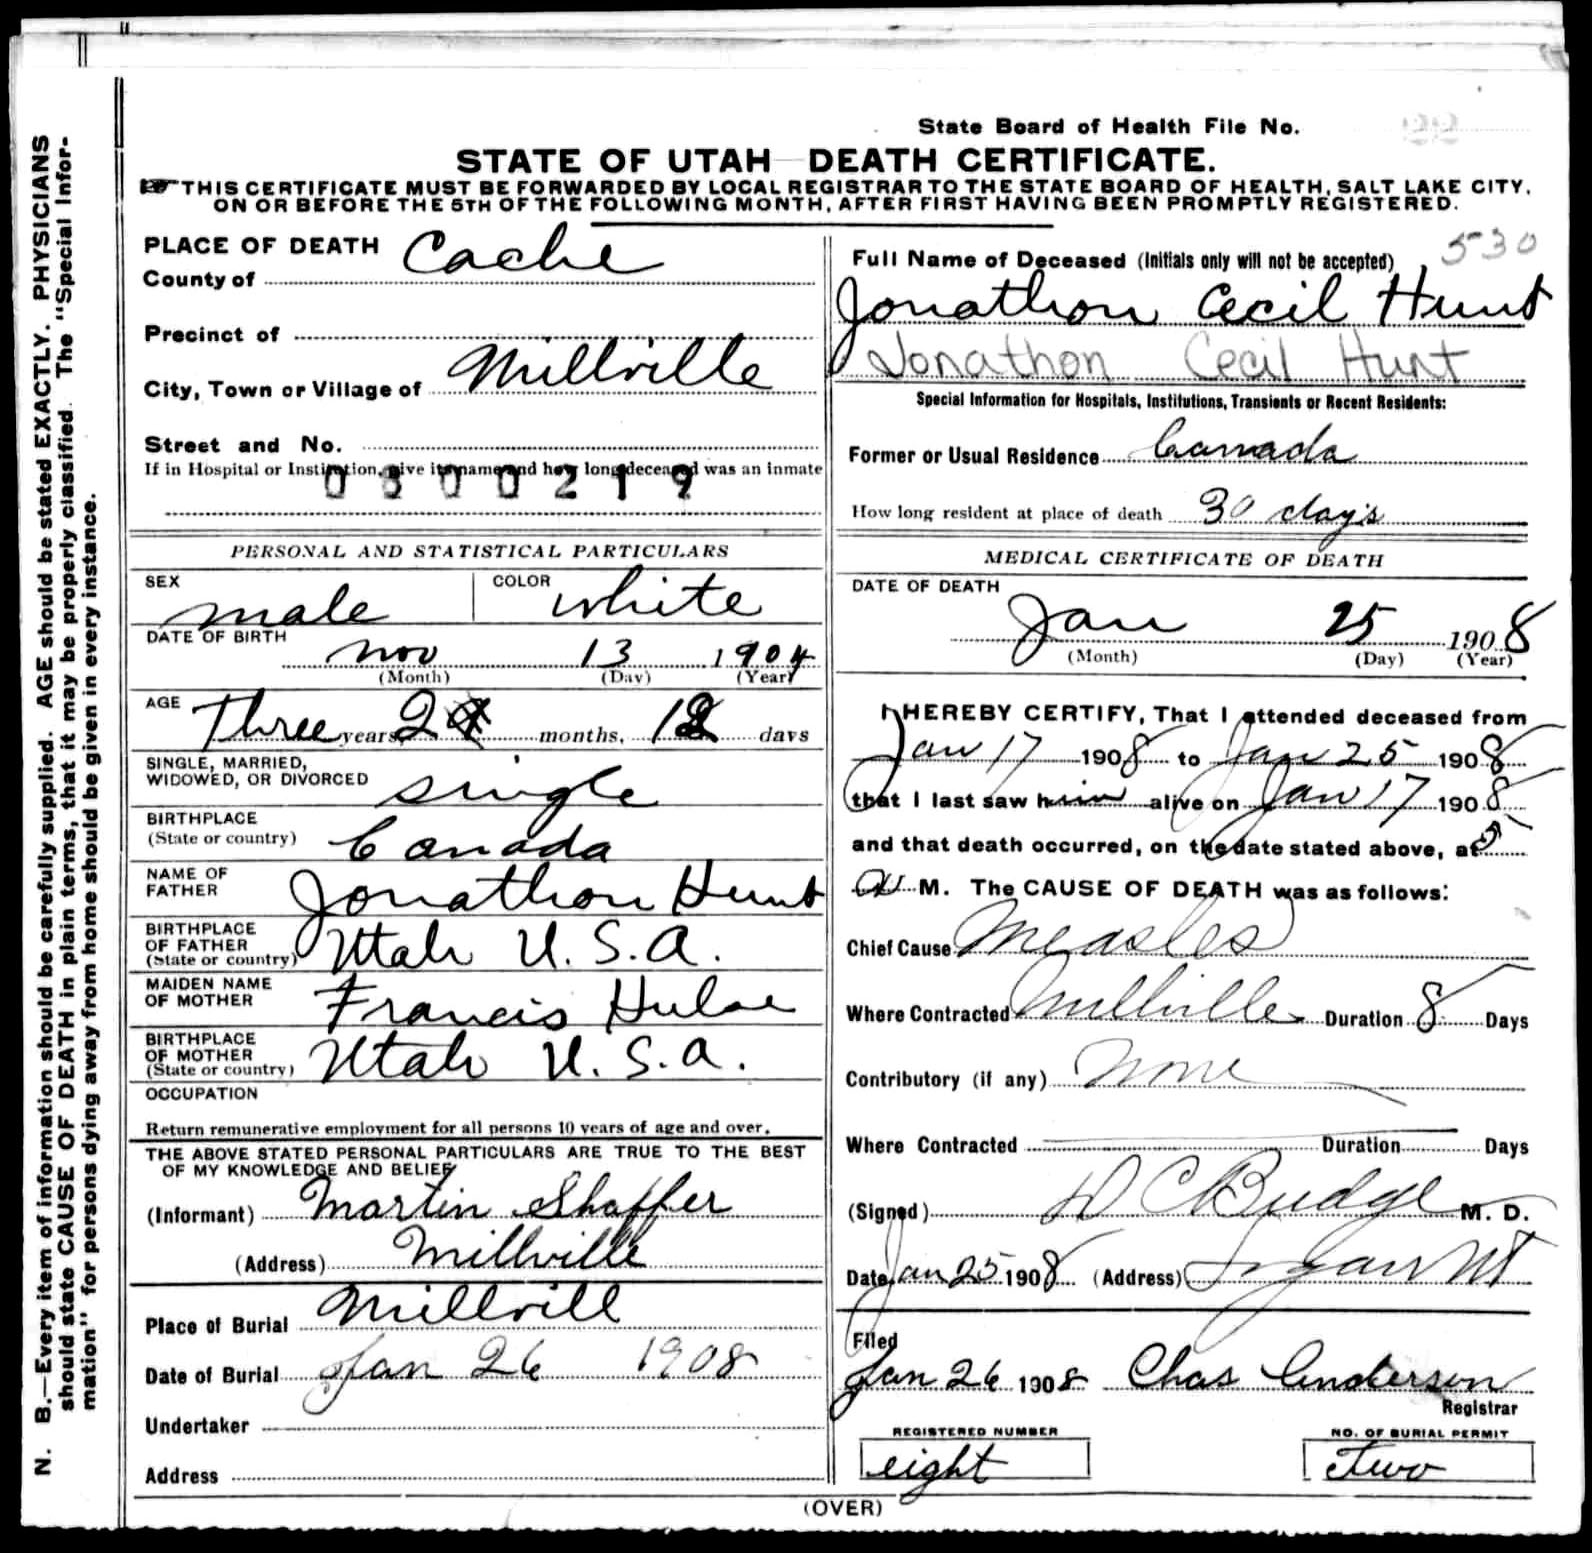 State Board of Health File No.
STATE OF UTAH DEATH CERTIFICATE.
THIS CERTIFICATE MUST BE FORWARDED BY LOCAL REGISTRAR TO THE STATE BOARD OF HEALTH, SALT LAKE CITY,
ON OR BEFORE THE 5TH OF THE FOLLOWING MONTH, AFTER FIRST HAVING BEEN PROMPTLY REGISTERED.
N. B.—Every item of information should be carefully supplied. AGE should be stated EXACTLY. PHYSICIANS
should state CAUSE OF DEATH in plain terms, that it may be properly classified. The "Special Infor-
mation" for persons dying away from home should be given in every instance.
PLACE OF DEATH
County of Cache
Precinct of
City, Town or Village of Millville
Street and No.
If in Hospital or Institution, give its name and how long deceased was an inmate
0300219
PERSONAL AND STATISTICAL PARTICULARS
SEX male COLOR white
DATE OF BIRTH
Nov 13 1904
(Month) (Day) (Year)
AGE Three years, 2 months, 12 days
SINGLE, MARRIED,
WIDOWED, OR DIVORCED single
BIRTHPLACE
(State or country) Canada
NAME OF
FATHER Jonathon Hunt
BIRTHPLACE
OF FATHER
(State or country) Utah U. S. A.
MAIDEN NAME
OF MOTHER Francis Hulse
BIRTHPLACE
OF MOTHER
(State or country) Utah U. S. A.
OCCUPATION
Return remunerative employment for all persons 10 years of age and over.
THE ABOVE STATED PERSONAL PARTICULARS ARE TRUE TO THE BEST
OF MY KNOWLEDGE AND BELIEF
(Informant) Martin Shaffer
(Address) Millville
Place of Burial Millvill
Date of Burial Jan 26 1908
Undertaker
Address
530
Full Name of Deceased (Initials only will not be accepted)
Jonathon Cecil Hunt
Jonathon Cecil Hunt
Special Information for Hospitals, Institutions, Transients or Recent Residents:
Former or Usual Residence Canada
How long resident at place of death 30 days
MEDICAL CERTIFICATE OF DEATH
DATE OF DEATH
Jan 25 1908
(Month) (Day) (Year)
I HEREBY CERTIFY, That I attended deceased from
Jan 17 1908 to Jan 25 1908
that I last saw him alive on Jan 17 1908
and that death occurred, on the date stated above, at 5
a M. The CAUSE OF DEATH was as follows:
Chief Cause Measles
Where Contracted Millville Duration 8 Days
Contributory (if any) None
Where Contracted Duration Days
(Signed) D C Budge M. D.
Date Jan 25 1908 (Address) Logan Ut
Filed
Jan 26 1908 Chas Anderson
Registrar
REGISTERED NUMBER
eight
NO. OF BURIAL PERMIT
Two
(OVER)